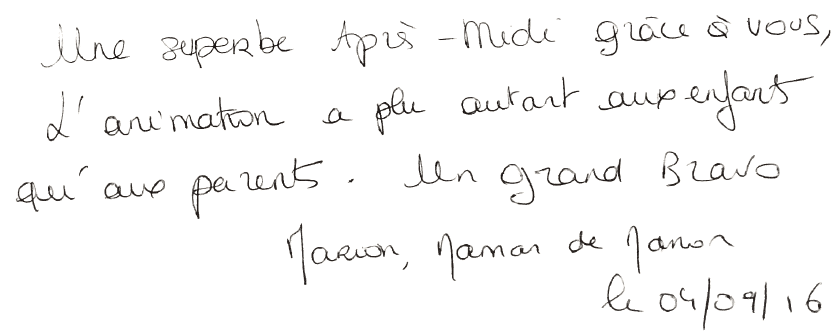 Une superbe Après-Midi grâce à vous,
L'animation a plu autant aux enfants
qu'aux parents. Un grand Bravo
Marion, Maman de Manon
le 04/09/16